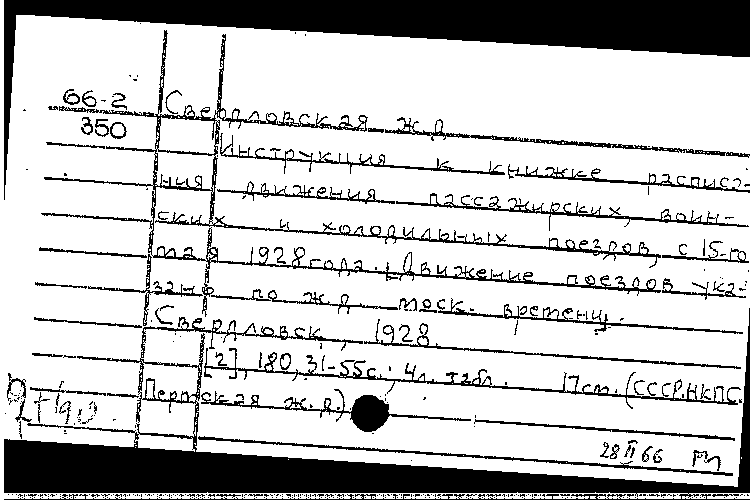 66-2 Свердловская ж.д.
350
Инструкция к книжке расписа-
ния движения пассажирских, воин-
ских и холодильных поездов, с 15-го
мая 1928 года. [Движение поездов ука-
зано по ж.д. моск. времени].
Свердловск, 1928.
[2], 180, 31-55с.; 4л. табл. 17см. (СССР.НКПС.
Пермская ж.д.)
28 II 66